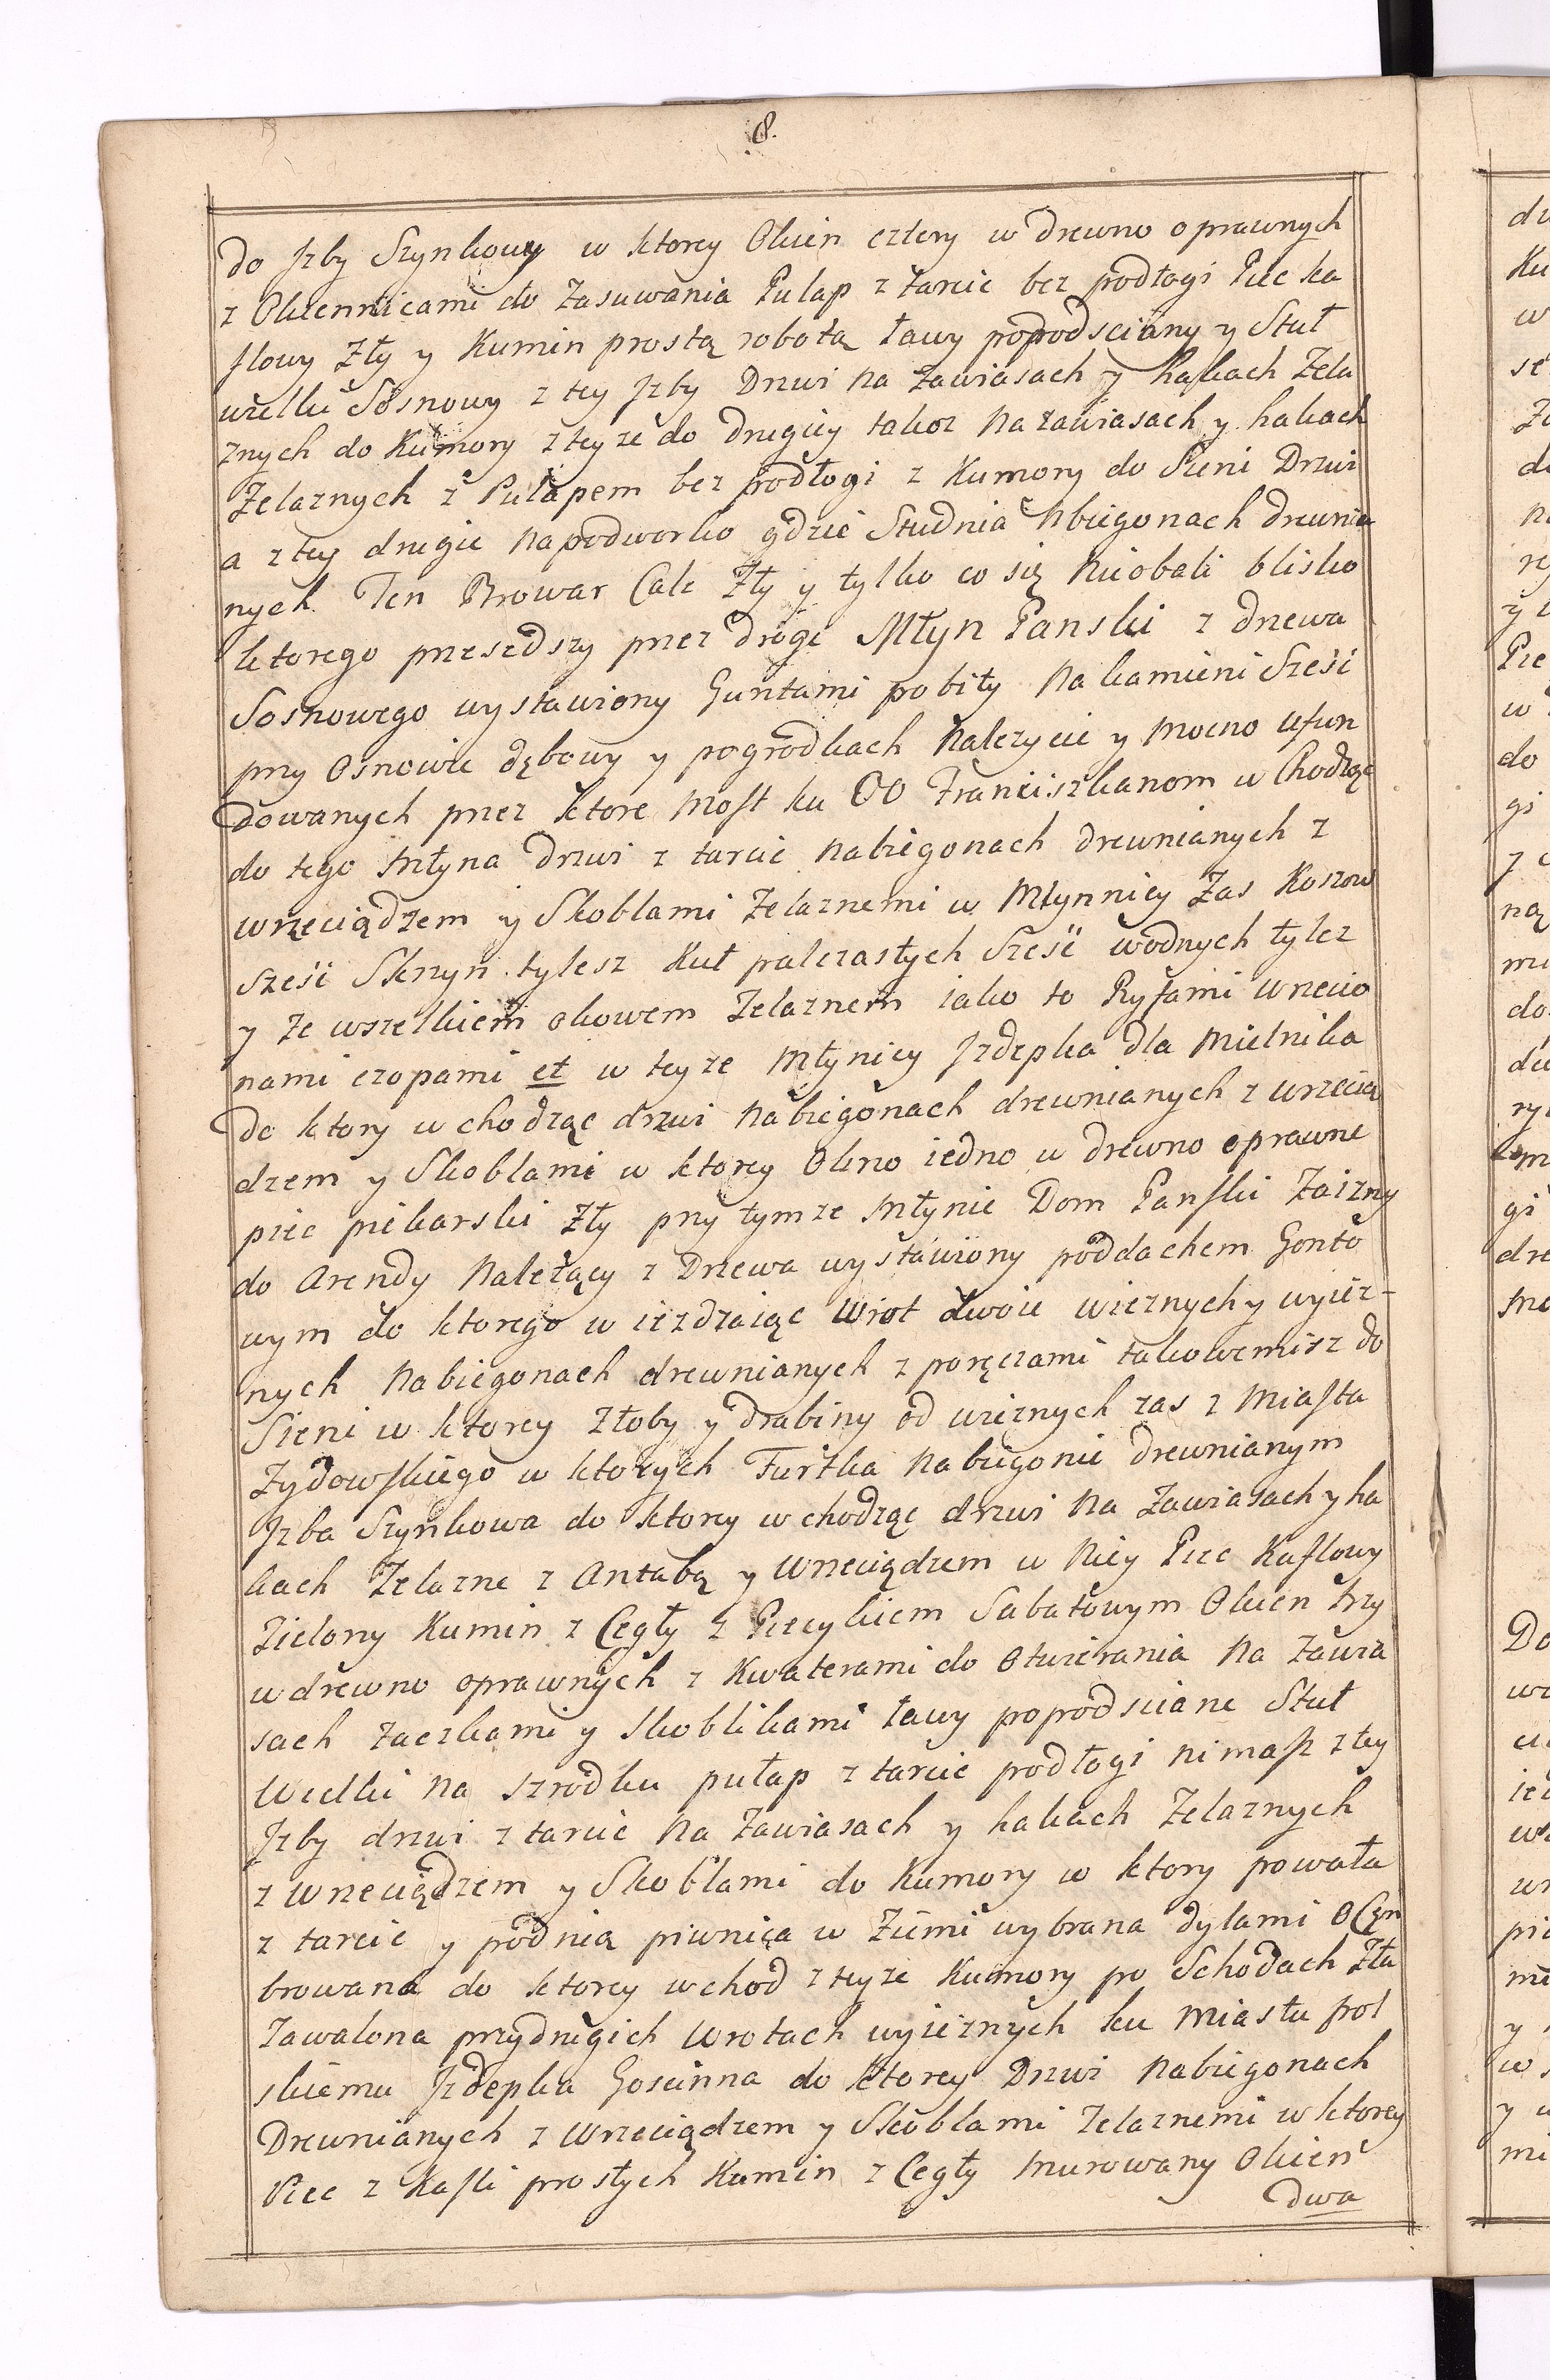 8.
do Jzby Szynkowy w ktorey Okien cztery w drewno oprawnych
z Okiennicami do Zasuwania Pulap z tarcic bez podłogi Piec ka
flowy Zły y Kumin prostą robotą Ławy popodsciany y Stuł
wielki Sosnowy z tey Jzby Drzwi na zawiasach y hakach Zela
znych do Kumory z teyze do drugiey takoz na zawiasach y hakach
Zelaznych z Pułapem bez podłogi z Kumory do Sieni Drzwi
a z tey drugie na podworko gdzie Studnia Nbiegonach drewnia
nych. Ten Browar Cale Zły y tylko co się nieobali blisko
ktorego przeszedszy przez drogę Młyn Panski z drzewa
Sosnowego wystawiony Guntami pobity na kamieni Sześć
przy Osnowie dębowy y pogrodkach Należycie y mocno ufun
dowanych przez ktore most ku OO Franciszkanom w Chodząc
do tego młyna drzwi z tarcic nabiegonach drewnianych z
wrzeciądzem y Skoblami Zelaznemi w Młynnicy Zas Koszow
sześć Skrzyn tylesz Kuł palczastych Sześć wodnych tylez
y ze wszelkiem okowem Zelaznem iako to Ryfami wrzecio
nami czopami et w teyze Młynicy Jzdepka dla Mielnika
do ktory wchodząc drzwi nabiegonach drewnianych z wrzecią
dzem y Skoblami w ktorey Okno iedno w drewno oprawne
piec piekarski Zły przy tymze młynie Dom Panski Zaizny
do Arendy Należący z Drzewa wystawiony pod dachem Gonto
wym do ktorego wiezdzaiąc Wrot dwoie wieznych y wyiez-
nych Nabiegonach drewnianych z poręczami takowemisz do
Sieni w ktorey Złoby y drabiny od wieznych zas z Miasta
Zydowskiego w ktorych Furtka nabiegonie drewnianym
Jzba Szynkowa do ktorey wchodząc drzwi na Zawiasach y ha
kach Zelazne z Antabą y Wrzeciądzem w Niey Piec Kaflowy
Zielony Kumin z Cegły z Piecykiem Sabatowym Okien trzy
wdrewno oprawnych z Kwaterami do Otwierania na Zawia
sach zaczkami y skoblikami ławy popodsciane Stuł
Wielki na szrodku pułap z tarcic podłogi nimasz z tey
Jzby drzwi z tarcic na Zawiasach y hakach Zelaznych
z Wrzeciądzem y Skoblami do Kumory w ktory powała
z tarcic y podnią piwnica w Ziemi wybrana dylami OCęn
browana do ktorey wchod z teyze Kumory po Schodach Zła
Zawalona przydrugich Wrotach wyieznych ku Miastu pol
skiemu Jzdepka Goscinna do Ktorey Drzwi nabiegonach
Drewnianych z Wrzeciądzem y Skoblami Zelaznemi w ktorey
Piec z Kafli prostych Kumin z Cegły murowany Okien
dwa